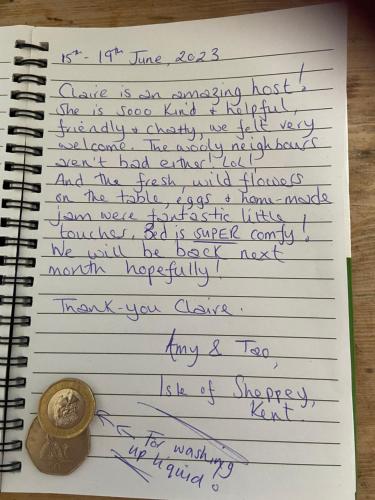 15th - 19th June, 2023
Claire is an amazing host!
She is sooo kind & helpful,
friendly & chatty, we felt very
welcome. The wooly neighbours
aren't bad either! Lol!
And the fresh, wild flowers
on the table, eggs & home-made
jam were fantastic little
touches. Bed is SUPER comfy!
We will be back next
month hopefully!
Thank-you Claire.
Amy & Tao,
Isle of Sheppey,
Kent.
For washing
up liquid.